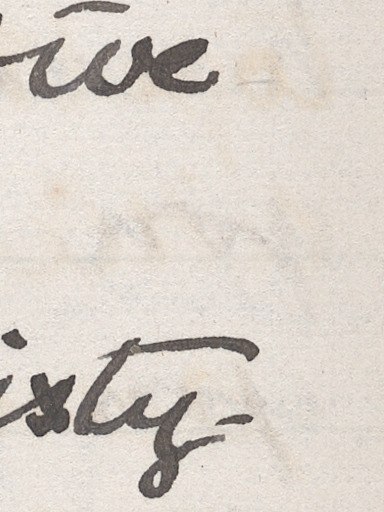 tive
ixty-